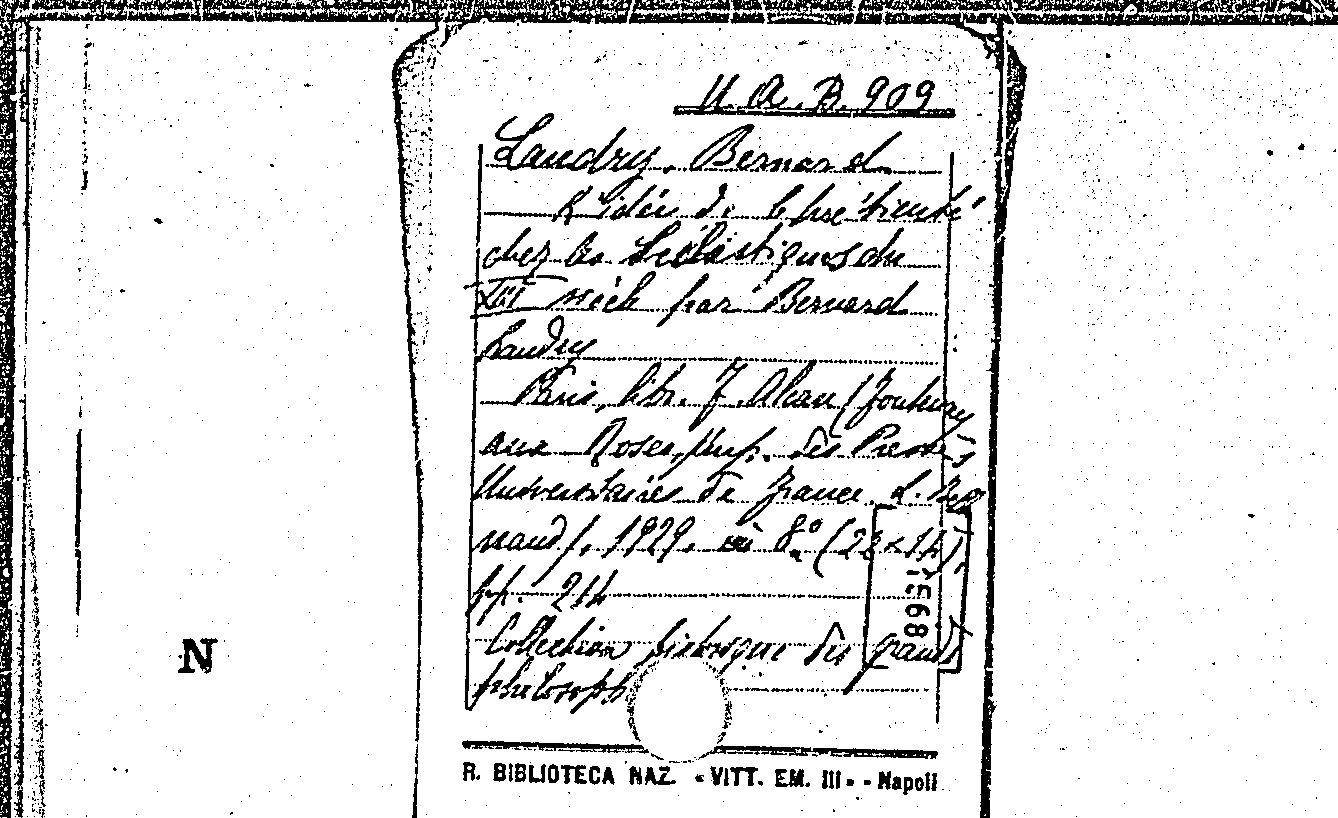 U. A. B. 909
Landry, Bernard
L'idée de chrétienté
chez les Scolastiques du
XIII siècle par Bernard
Landry
Paris, libr. F. Alcan (Fontenay
aux Roses, Imp. des Presses
Universitaires de France. L. Bel
naud), 1929. in 8.° (22 x 14),
pp. 214
Collection historique des grands
philosoph
15968
N
R. BIBLIOTECA NAZ. « VITT. EM. III » - Napoli